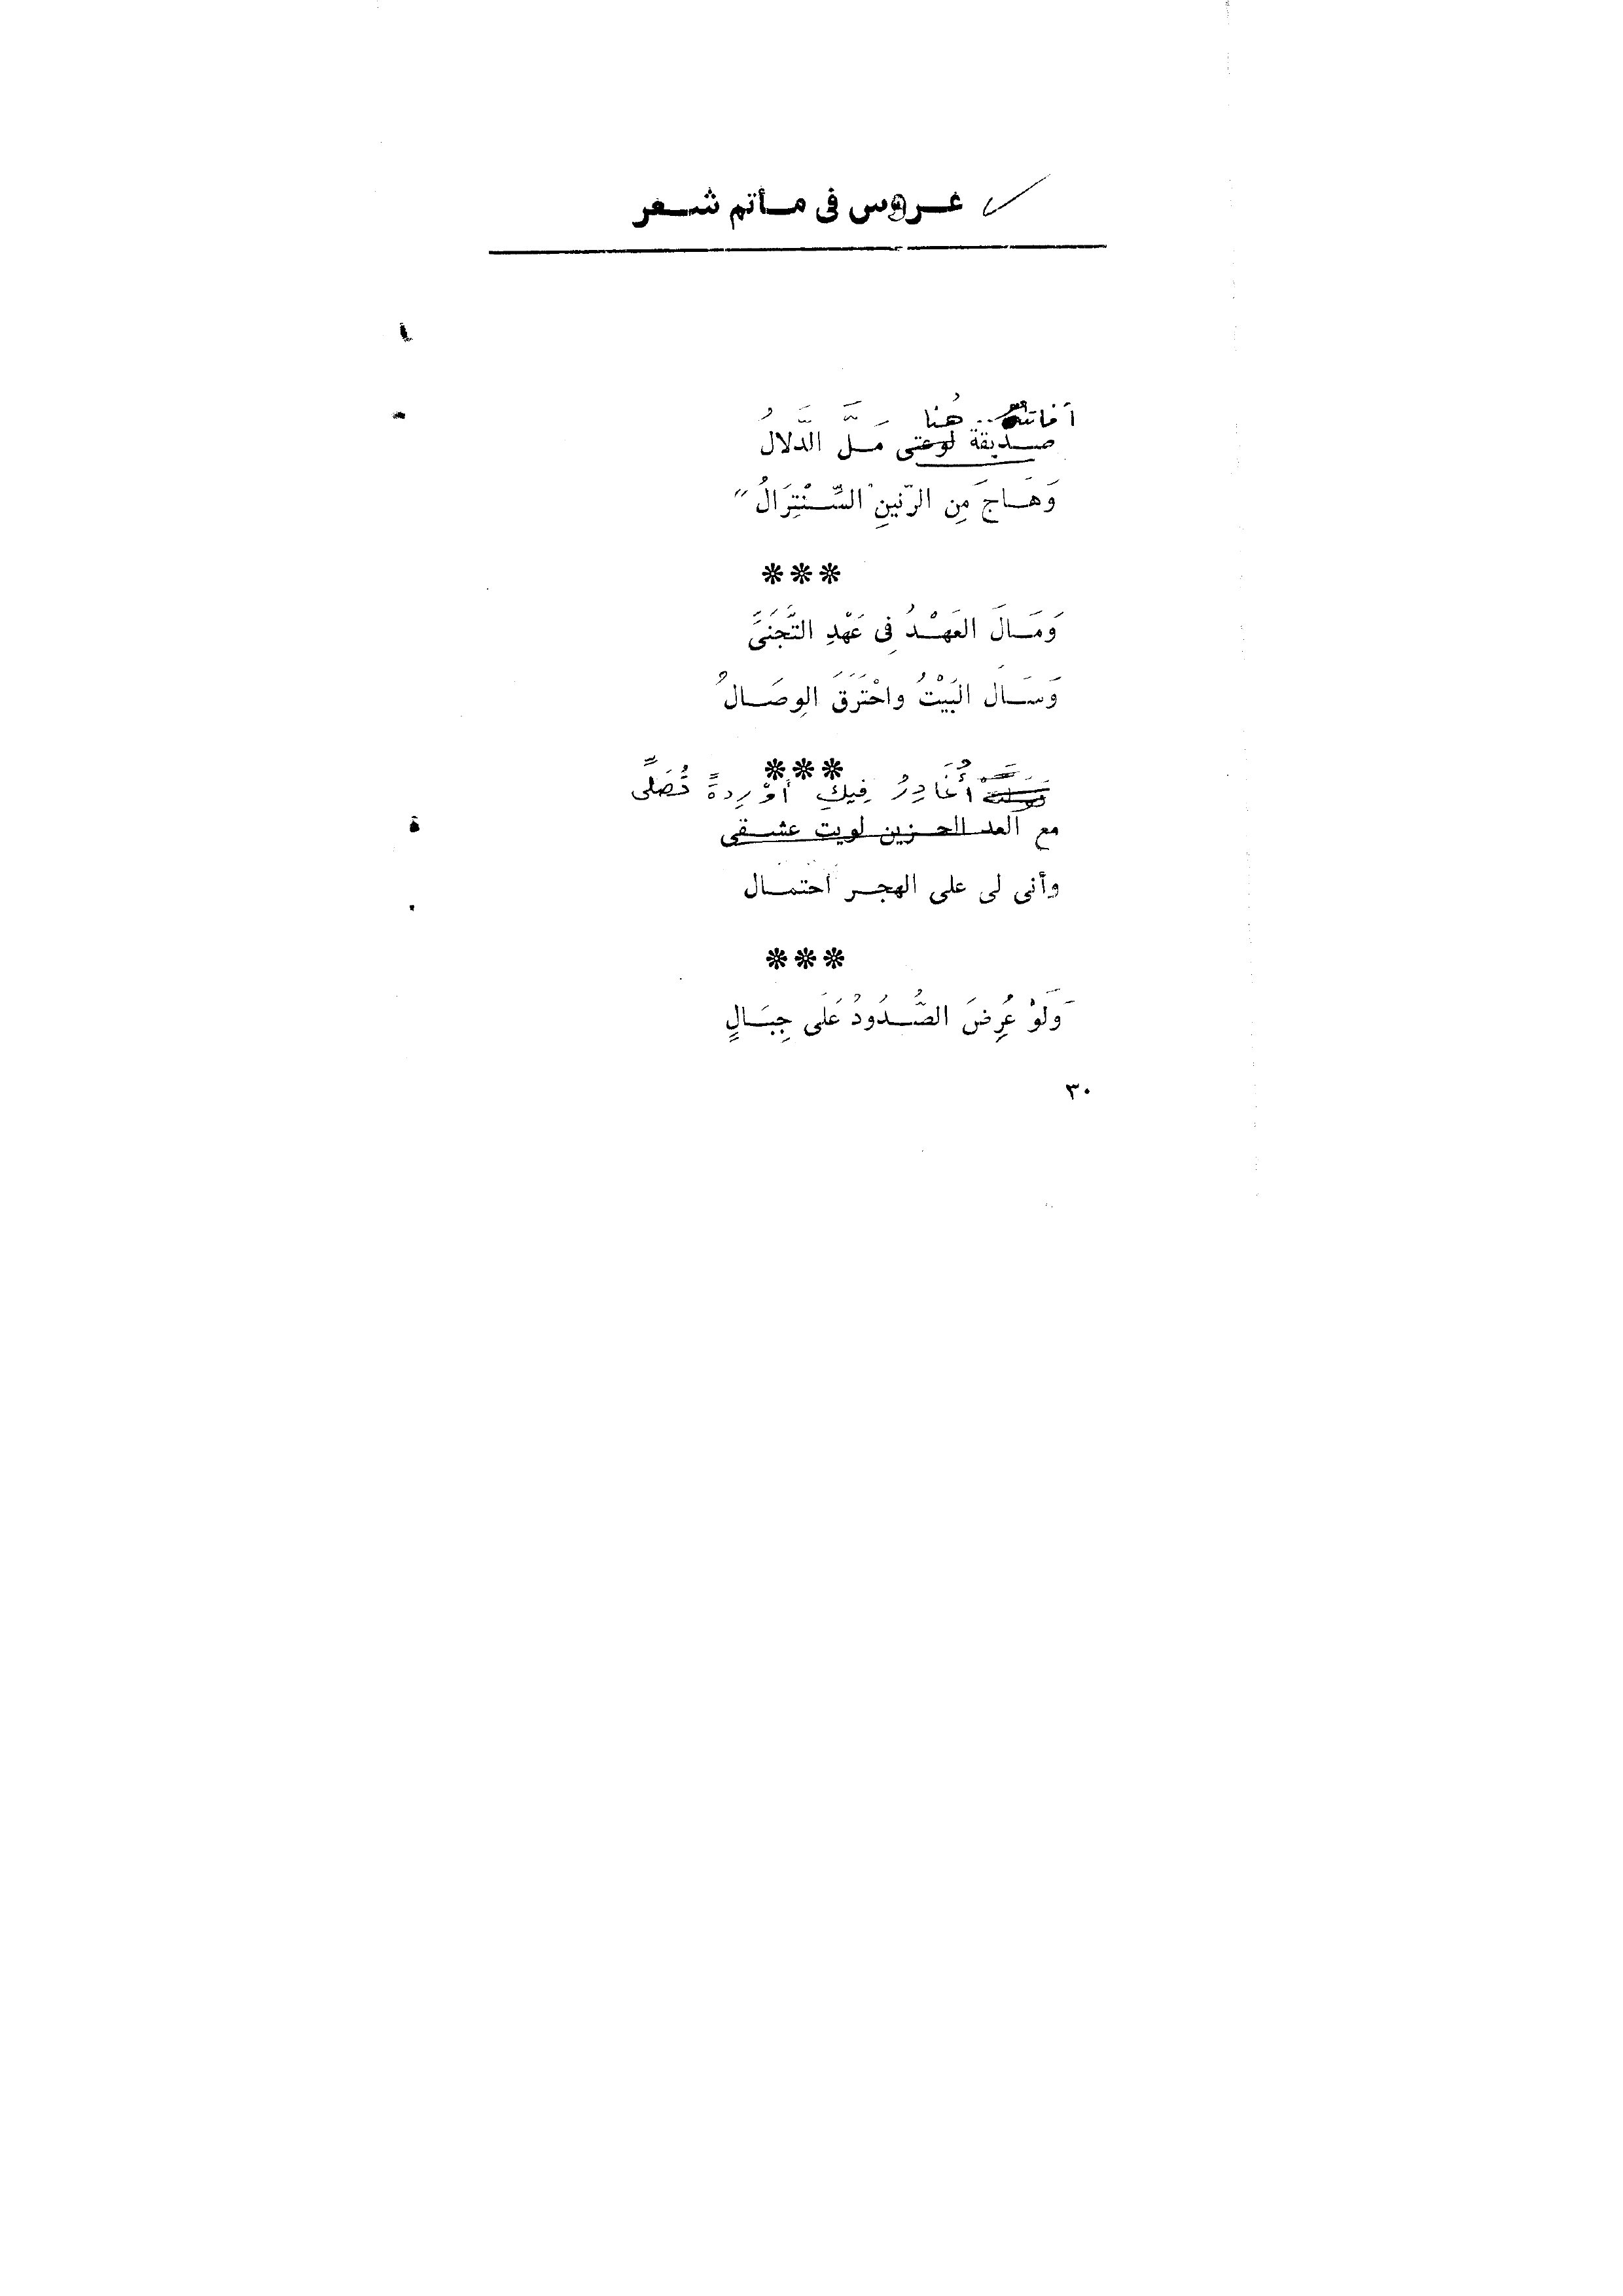 عروس فى مأتم شعر
أفاتنة .. هُنا
صديقة لوعتى مَلَّ الدَّلالُ
وَهَاجَ مِن الرّنينِ "السِّنْتِرَالُ"
***
وَمَالَ العَهْدُ فِى عَهْدِ التَّجَنىِّ
وَسَال البَيْتُ واحْتَرَقَ الوِصَالُ
***
أُغَادِرُ فِيكِ أوْرِدةً تُصَلَّى
مع العد الحزين لويت عشقى
وأنى لى على الهجر احتمال
***
وَلَوْ عُرِضَ الصُّدُودُ عَلَى جِبَالٍ
٣٠